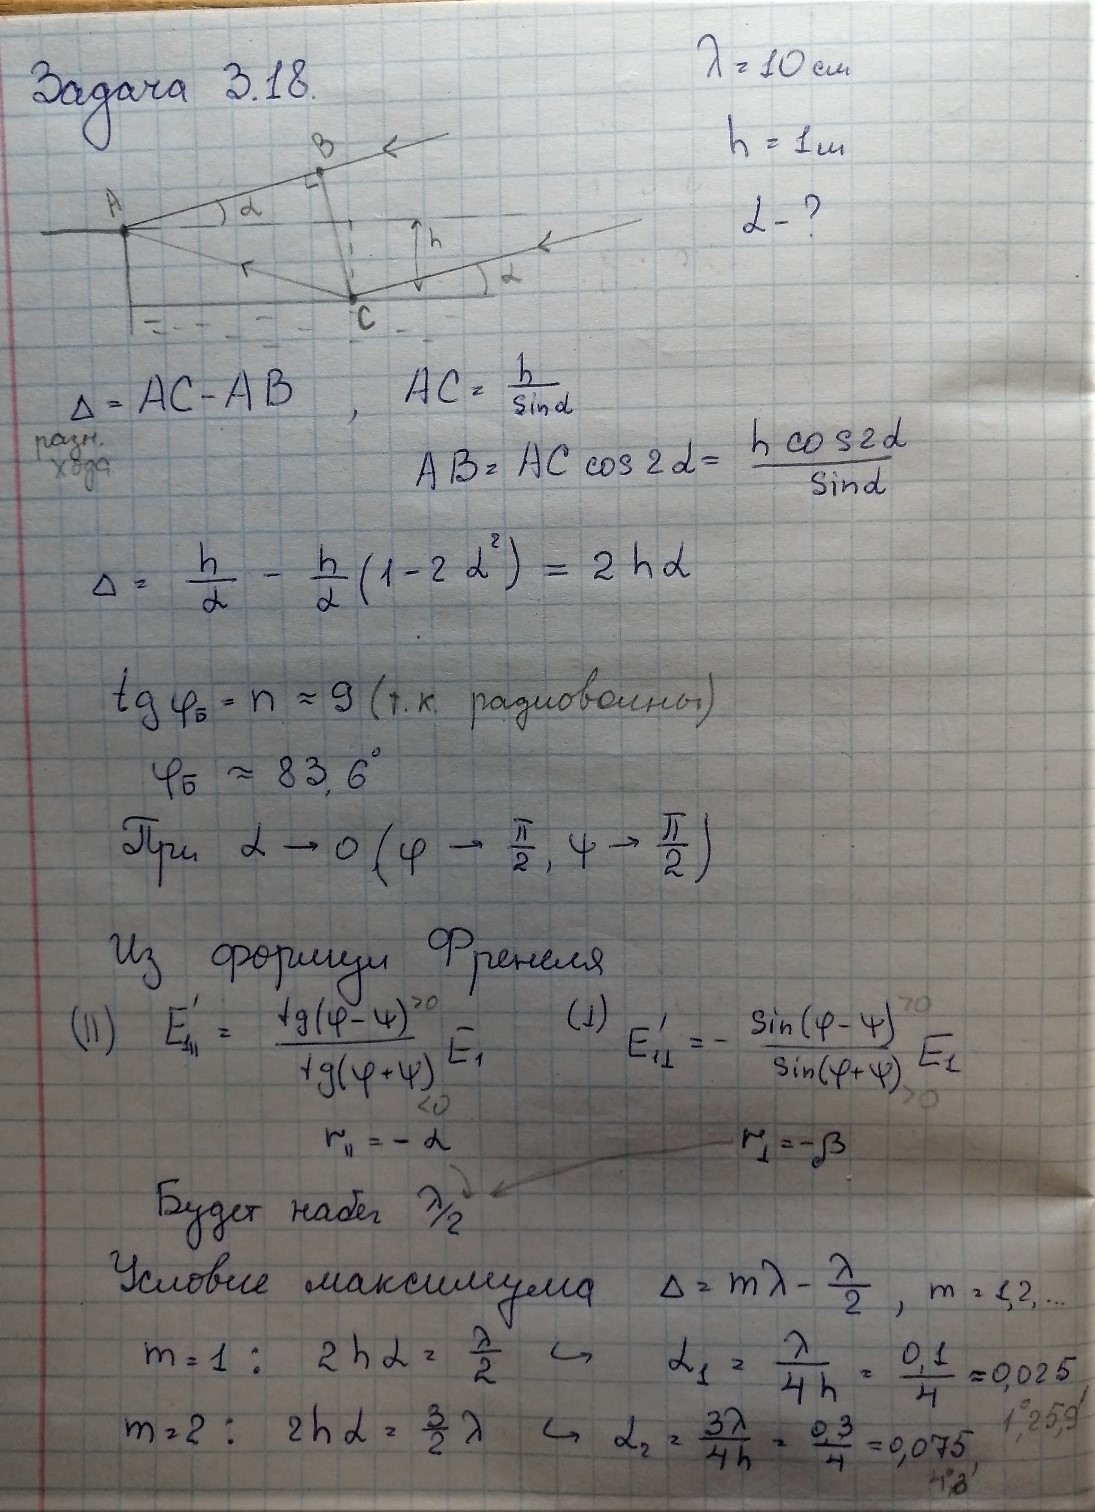 Задача 3.18.
λ = 10 см
h = 1 м
α - ?
A
B
α
h
α
C
Δ = AC - AB , AC = h / sinα
разн. хода
AB = AC cos2α = h cos2α / sinα
Δ = h/α - h/α (1 - 2α²) = 2hα
tg φ_Б = n ≈ 9 (т.к. радиоволны)
φ_Б ≈ 83,6°
При α → 0 (φ → π/2, ψ → π/2)
Из формул Френеля
(||) E'₁|| = tg(φ-ψ) >0 / tg(φ+ψ) <0 E₁ (⊥) E'₁⊥ = - sin(φ-ψ) >0 / sin(φ+ψ) >0 E₁
r|| = - α r⊥ = -β
Будет набег λ/2
Условие максимума Δ = mλ - λ/2 , m = 1,2,...
m = 1 : 2hα = λ/2 ↪ α₁ = λ/4h = 0,1/4 = 0,025,
1°25,9'
m = 2 : 2hα = 3/2 λ ↪ α₂ = 3λ/4h = 0,3/4 = 0,075,